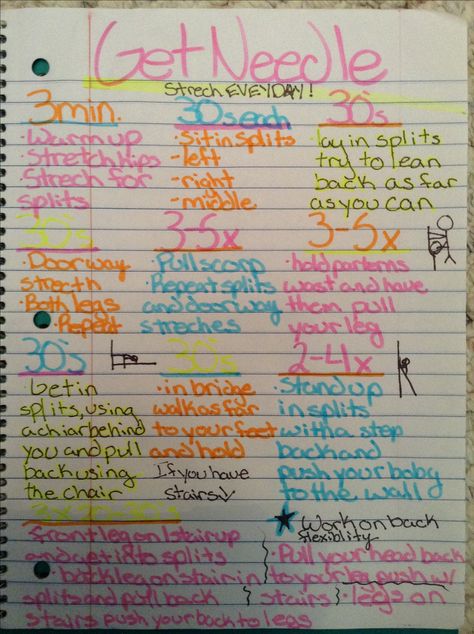 Get Needle
Strech EVERYDAY!
3 min.
· Warm up
· Stretch hips
· Strech for
splits
30s each
· Sit in splits
- left
- right
- middle
30s
lay in splits
try to lean
back as far
as you can
30s
· Doorway
strecth
· Both legs
· Repeat
3-5x
· Pull scorp
· Repeat splits
and doorway
streches
3-5x
· hold parterns
wast and have
them pull
your leg
30's
Get in
splits, using
a chiar behind
you and pull
back using
the chair
30's
· in bridge
walk as far
to your feet
and hold
2-4x
· Stand up
in splits
with a step
back and
push your baby
to the wall
If you have
stairs
3x 20-30's
front leg on 1 stair up
and get into splits
· back leg on stair in
splits and pull back
stairs push your back to legs
★ Work on back
flexiblity
· Pull your head back
to your leg push w/
stairs
· legs on